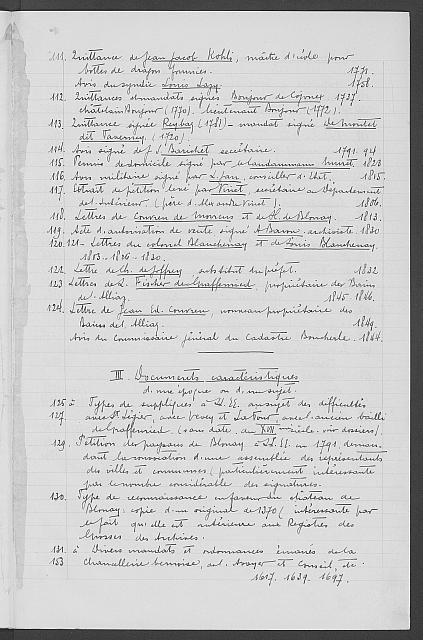 111. Quittance de Jean Jacob Kohli, maître d'école pour
bottes de dragon fournies. 1771.
Avis du syndic Louis 1758.
112. Quittances et mandats signés Bonjour de Cojonex 1737.
châtelain Bonjour (1770). lieutenant Bonjour (1772).
113. Quittance signée (1781) - mandat signé de Montet
dit Taverney. (1720)
114. Avis signé de secrétaire. 1791. 94
115. Permis de domicile signé par le landammann Muret. 1823
116. Avis militaire signé par conseiller d'Etat. 1815.
117. Extrait de pétition levé par Vinet, secrétaire au Département
de l'Intérieur (père d'Alexandre Vinet). 1806.
118. Lettres de Couvreu de et de H. de Blonay. 1813.
119. Acte d'autorisation de vente signé A Baron, archiviste 1830
120. 121 - Lettres du colonel Blanchenay et de Louis Blanchenay.
1803 - 1826 - 1830.
122. Lettre de Ch. de Joffrey, substitut du préfet. 1832
123 Lettres de R. Fischer de Graffenried, propriétaire des Bains
de l'Alliaz. 1845. 1846.
124. Lettre de Jean Ed. Couvreu, nouveau propriétaire des
Bains de l'Alliaz. 1849.
Avis du Commissaire général du CadastreBoucherle. 1844.
III. Documents caractéristiques
d'une époque ou d'un sujet.
125. à Types de suppliques à LL. EE. au sujet des difficultés
127. avec St Légier, avec Vevey et La Tour, avec l'ancien bailli
de Graffenried (sans date, du XVIIme siècle - voir dossiers).
129. Pétition des paysans de Blonay à LL. EE. en 1791, deman-
dant la convocation d'une assemblée des représentants
des villes et communes (particulièrement intéressante
par le nombre considérable des signatures.
130. Type de reconnaissance en faveur du château de
Blonay: copie d'un original de 1370 (intéressante par
le fait qu'elle est antérieure aux Registres des
Grosses des Archives.
131. à Divers mandats et ordonnances émanés de la
153 chancellerie bernoise, Avoyer et Conseil, etc
1617. 1639. 1697.